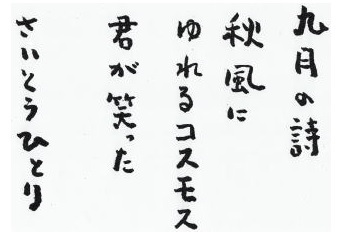 九月の詩
秋風に
ゆれるコスモス
君が笑った
さいとうひとり